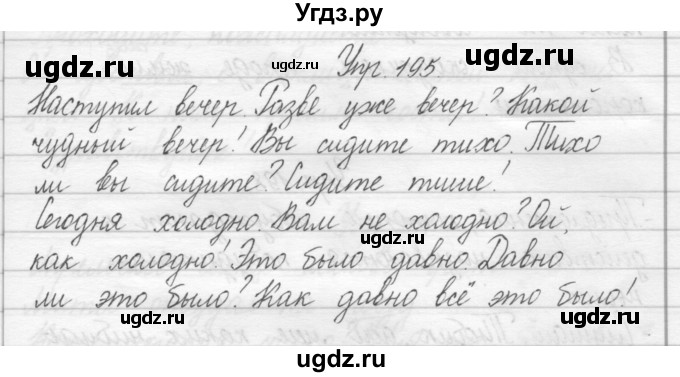 Угдз.ру
ugdz.ru ugdz.ru Упр. 195 ugdz.ru
Наступил вечер. Разве уже вечер? Какой
чудный вечер! Вы сидите тихо. Тихо
ugdz.ru
ли вы сидите? Сидите тише!
Сегодня холодно. Вам не холодно? Ой,
ugdz.ru
как холодно! Это было давно. Давно
ли это было? Как давно всё это было!
ugdz.ru ugdz.ru ugdz.ru
ugdz.ru